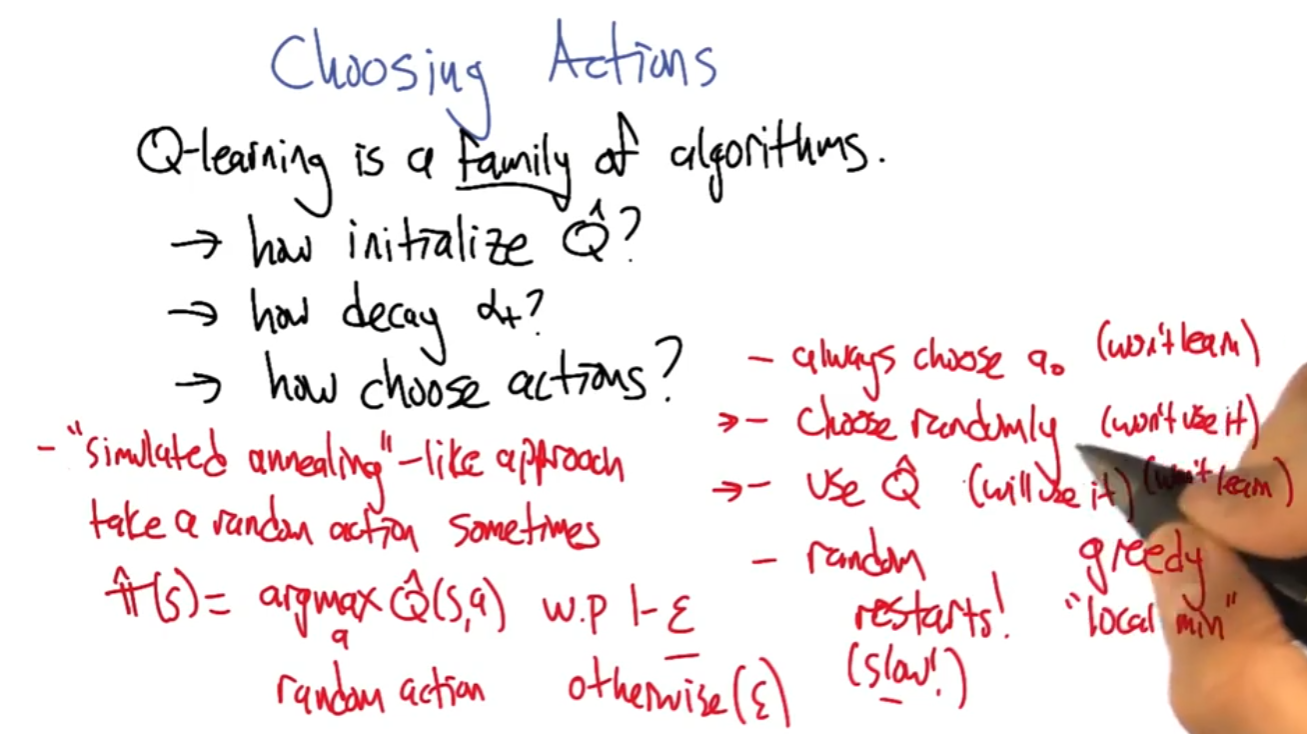 Choosing Actions
Q-learning is a family of algorithms.
→ how initialize Q̂?
→ how decay αt?
→ how choose actions?
- always choose a₀ (won't learn)
→ - choose randomly (won't use it)
→ - use Q̂ (will use it) (won't learn)
greedy
"local min"
- random
restarts!
(slow!)
- "simulated annealing"-like approach
take a random action sometimes
π̂(s) = argmax Q̂(s,a) w.p 1-ε
a
random action otherwise (ε)